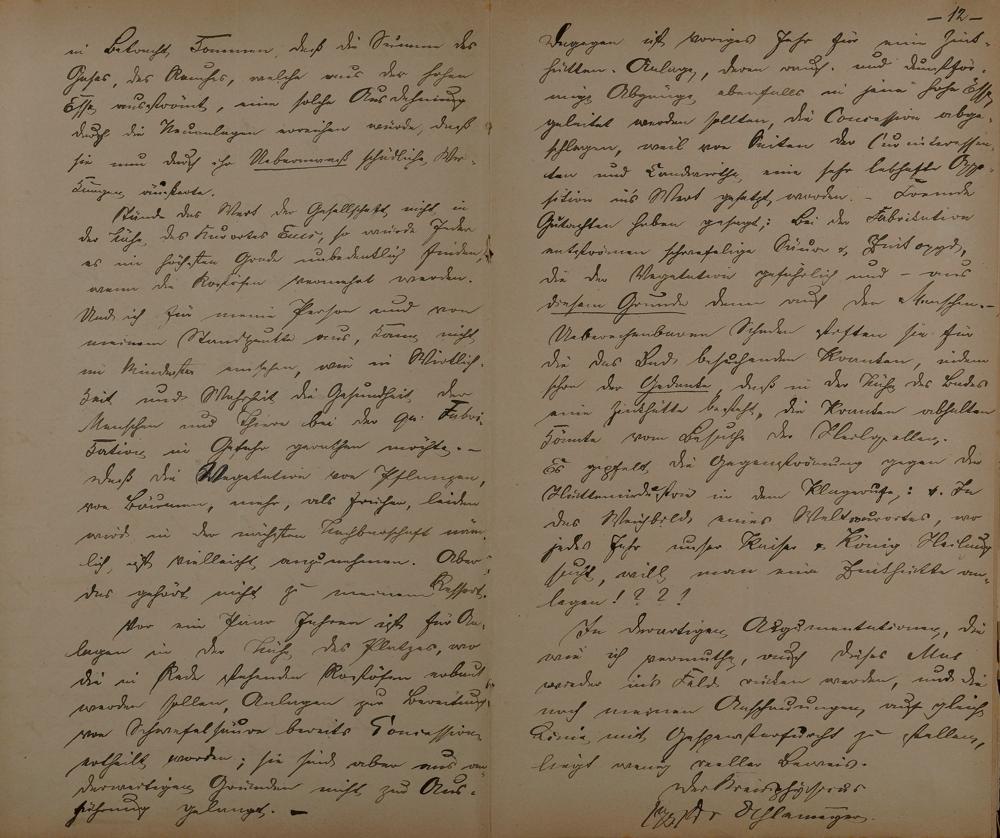 in Betracht kommen, daß die Summe des
Gases, des Rauches, welche aus der hohen
Esse ausströmt, eine solche Ausdehnung
durch die Neuanlagen erreichen würde, daß
sie nun durch ihr Uebermaaß schädliche Wir-
kungen äußerte.
Stünde das Werk der Gesellschaft nicht in
der Nähe des Kurortes Ems, so würde Jeder
es im höchsten Grade unbedenklich finden,
wenn die Röstöfen vermehrt werden.
Und ich für meine Person und von
meinem Standpunkte aus, kann nicht
im Mindesten einsehen, wie in Wirklich-
keit und Wahrheit die Gesundheit der
Menschen und Thiere bei der qu. Fabri-
kation in Gefahr gerathen möchte. -
Daß die Vegetation von Pflanzen,
von Bäumen, mehr, als früher, leiden
wird in der nächsten Nachbarschaft näm-
lich, ist vielleicht anzunehmen. Aber
das gehört nicht zu meinem Ressort.
Vor ein Paar Jahren ist für An-
lagen in der Nähe des Platzes, wo
die in Rede stehenden Röstöfen erbaut
werden sollen, Anlagen zur Bereitung
von Schwefelsäure bereits Concession
ertheilt worden; sie sind aber aus an-
derweitigen Gründen nicht zur Aus-
führung gelangt. -
- 12 -
Dagegen ist voriges Jahr für eine Zink-
hütten-Anlage, deren rauch- und dunstför-
mige Abgänge ebenfalls in jene hohe Esse
geleitet werden sollten, die Concession abge-
schlagen, weil von Seiten der Curinteressen-
ten und Landwirthe, eine sehr lebhafte Oppo-
sition in's Werk gesetzt worden. - Fremde
Gutachten haben gesagt: Bei der Fabrikation
entströmen schwefelige Säure &, Zinkoxyd,
die der Vegetation gefährlich und - aus
diesem Grunde denn auch den Menschen -
Unberechenbaren Schaden stiften sie für
die das Bad besuchenden Kranken, indem
schon der Gedanke, daß in der Nähe des Bades
eine Zinkhütte besteht, die Kranken abhalten
könnte vom Besuche der Heilquellen.
Es gipfelt die Gegenströmung gegen die
Hüttenindustrie in dem Klagerufe: In
das Weichbild eines Weltcurortes, wo
jedes Jahr unser Kaiser & König Heilung
sucht, will man eine Zinkhütte an-
legen! ? ? !
In derartigen Argumentationen, die
wie ich vermuthe, auch dieses Mal
wieder in's Feld rücken werden, und die
nach meinen Anschauungen auf gleiche
Linie mit Gespensterfurcht zu stellen,
liegt wenig reeller Beweis.
Der Kreisphysicus